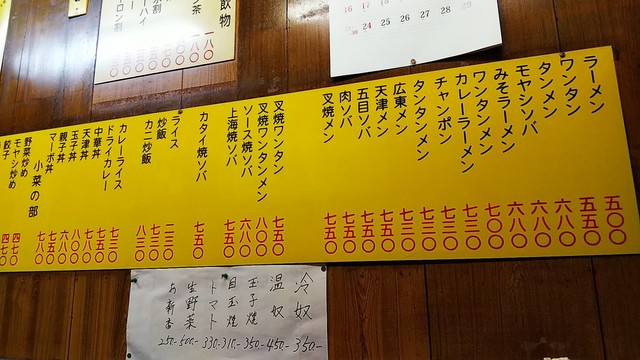 ラーメン 五〇〇
ワンタン 五五〇
タンメン 六八〇
モヤシソバ 六八〇
みそラーメン 六八〇
ワンタンメン 七〇〇
カレーラーメン 七三〇
チャンポン 七三〇
タンタンメン 七三〇
広東メン 七三〇
天津メン 七五〇
五目ソバ 七五〇
肉ソバ 七五〇
叉焼メン 七五〇
叉焼ワンタン 七五〇
叉焼ワンタンメン 八〇〇
ソース焼ソバ 六八〇
上海焼ソバ 七五〇
カタイ焼ソバ 七五〇
ライス 二三〇
炒飯 七三〇
カニ炒飯 八三〇
カレーライス 七三〇
ドライカレー 七五〇
中華丼
天津丼
玉子丼
親子丼
マーボ丼
小菜の部
野菜炒め
モヤシ炒め
餃子
飲物
16 17 18 19 20 21 22
24 25 26 27 28 29
冷奴 350-
温奴 450-
玉子焼 350-
目玉焼 310-
トマト 330-
生野菜 500-
お新香 250-